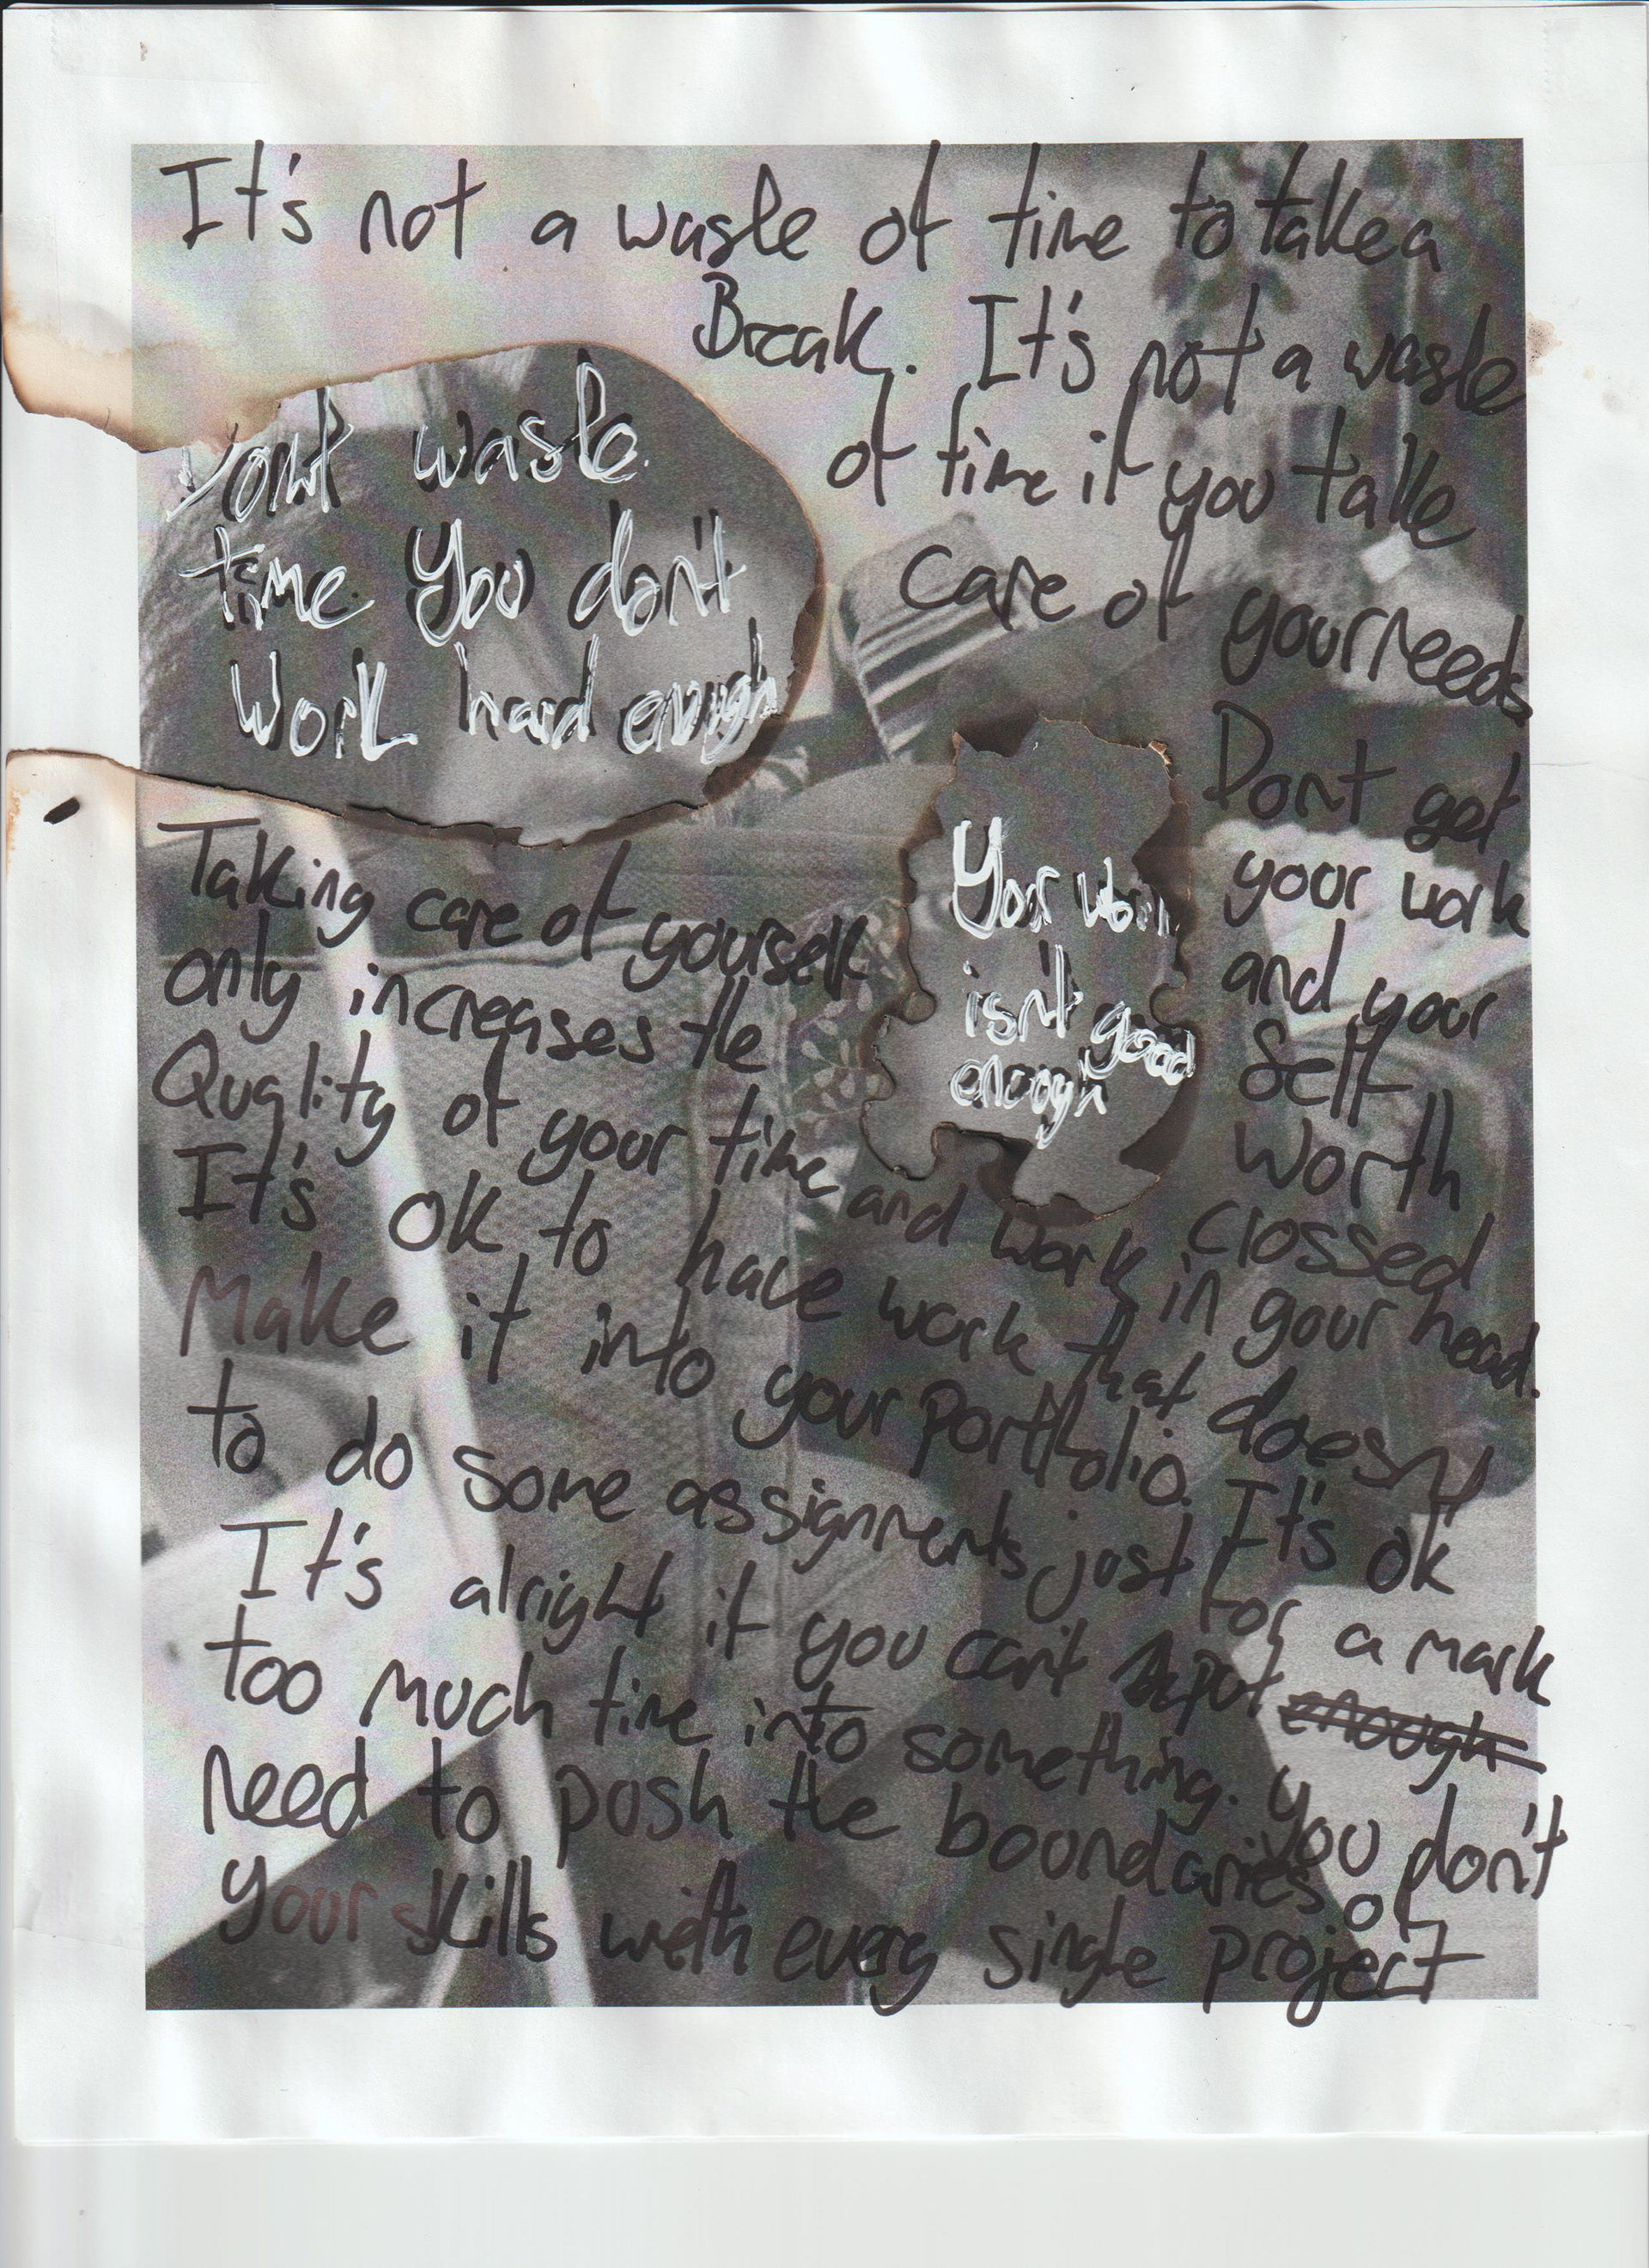 It's not a waste of time to take a
Break. It's not a waste
of time if you take
care of your needs
Dont waste
time You don't
Work hard enough
Dont get
your work
and your
Self
worth
clossed
in your head.
Your work
isn't good
enough
Taking care of yourself
only increases the
Quality of your time and work
It's ok to have work that doesnt
Make it into your portfolio. It's ok
to do some assignments just for a mark
It's alright if you can't put enough
too much time into something. You don't
need to push the boundaries of
your skills with every single project